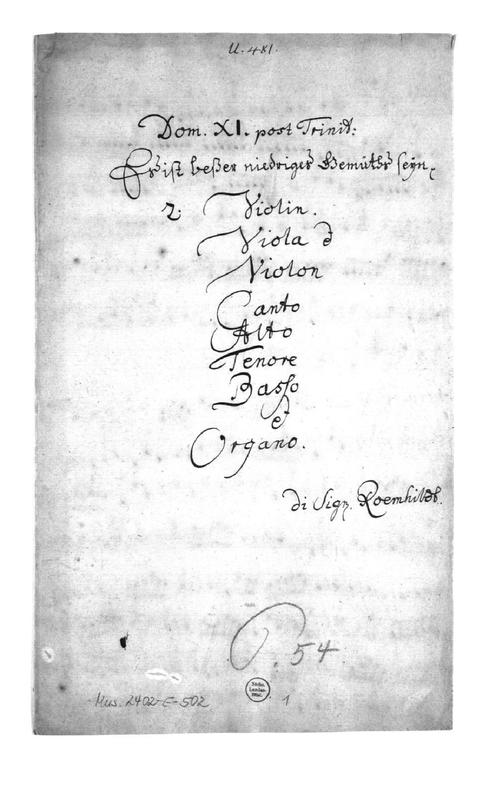 U. 481.
Dom. XI. post Trinit:
Es ist beßer niedriges Gemüths seyn
2. Violin.
Viola
Violon
Canto
Alto
Tenore
Basso
et
Organo.
di Sign. Roemhildt.
54
Mus. 2402-E-502
1
Sächs. Landes-Bibl.